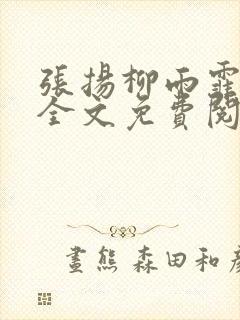 張揚柳雨霏
全文免費閱
畫熊 森田和彥